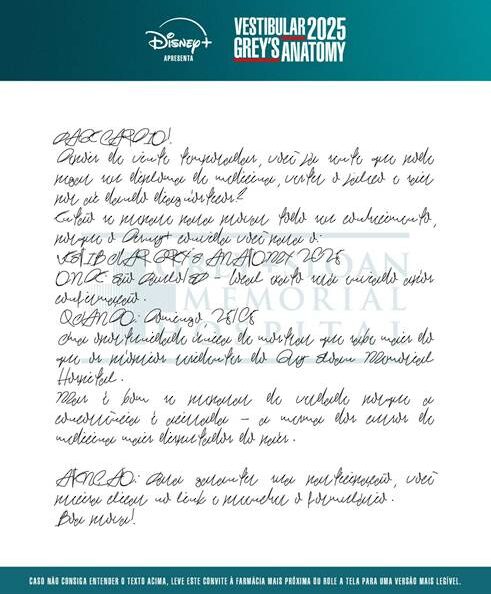 Disney+
APRESENTA
VESTIBULAR 2025
GREY'S ANATOMY
Depois de vinte temporadas, você já sente que pode
pegar seu diploma de medicina, vestir o jaleco e sair
por aí dando diagnósticos?
Então se prepare para provar todo seu conhecimento,
porque o convida você para o:
VESTIBULAR GREY'S ANATOMY 2025
ONDE: São Paulo/SP – local exato será enviado após
confirmação.
QUANDO: Domingo,
Uma oportunidade única de mostrar que sabe mais do
que os próprios residentes do Grey Sloan Memorial
Hospital.
Mas é bom se preparar de verdade porque a
concorrência é acirrada – a mesma dos cursos de
medicina mais disputados do país.
ATENÇÃO: Para garantir sua participação, você
precisa clicar no link e preencher o formulário.
Boa prova!
SLOAN
MEMORIAL
HOSPITAL
CASO NÃO CONSIGA ENTENDER O TEXTO ACIMA, LEVE ESTE CONVITE À FARMÁCIA MAIS PRÓXIMA OU ROLE A TELA PARA UMA VERSÃO MAIS LEGÍVEL.